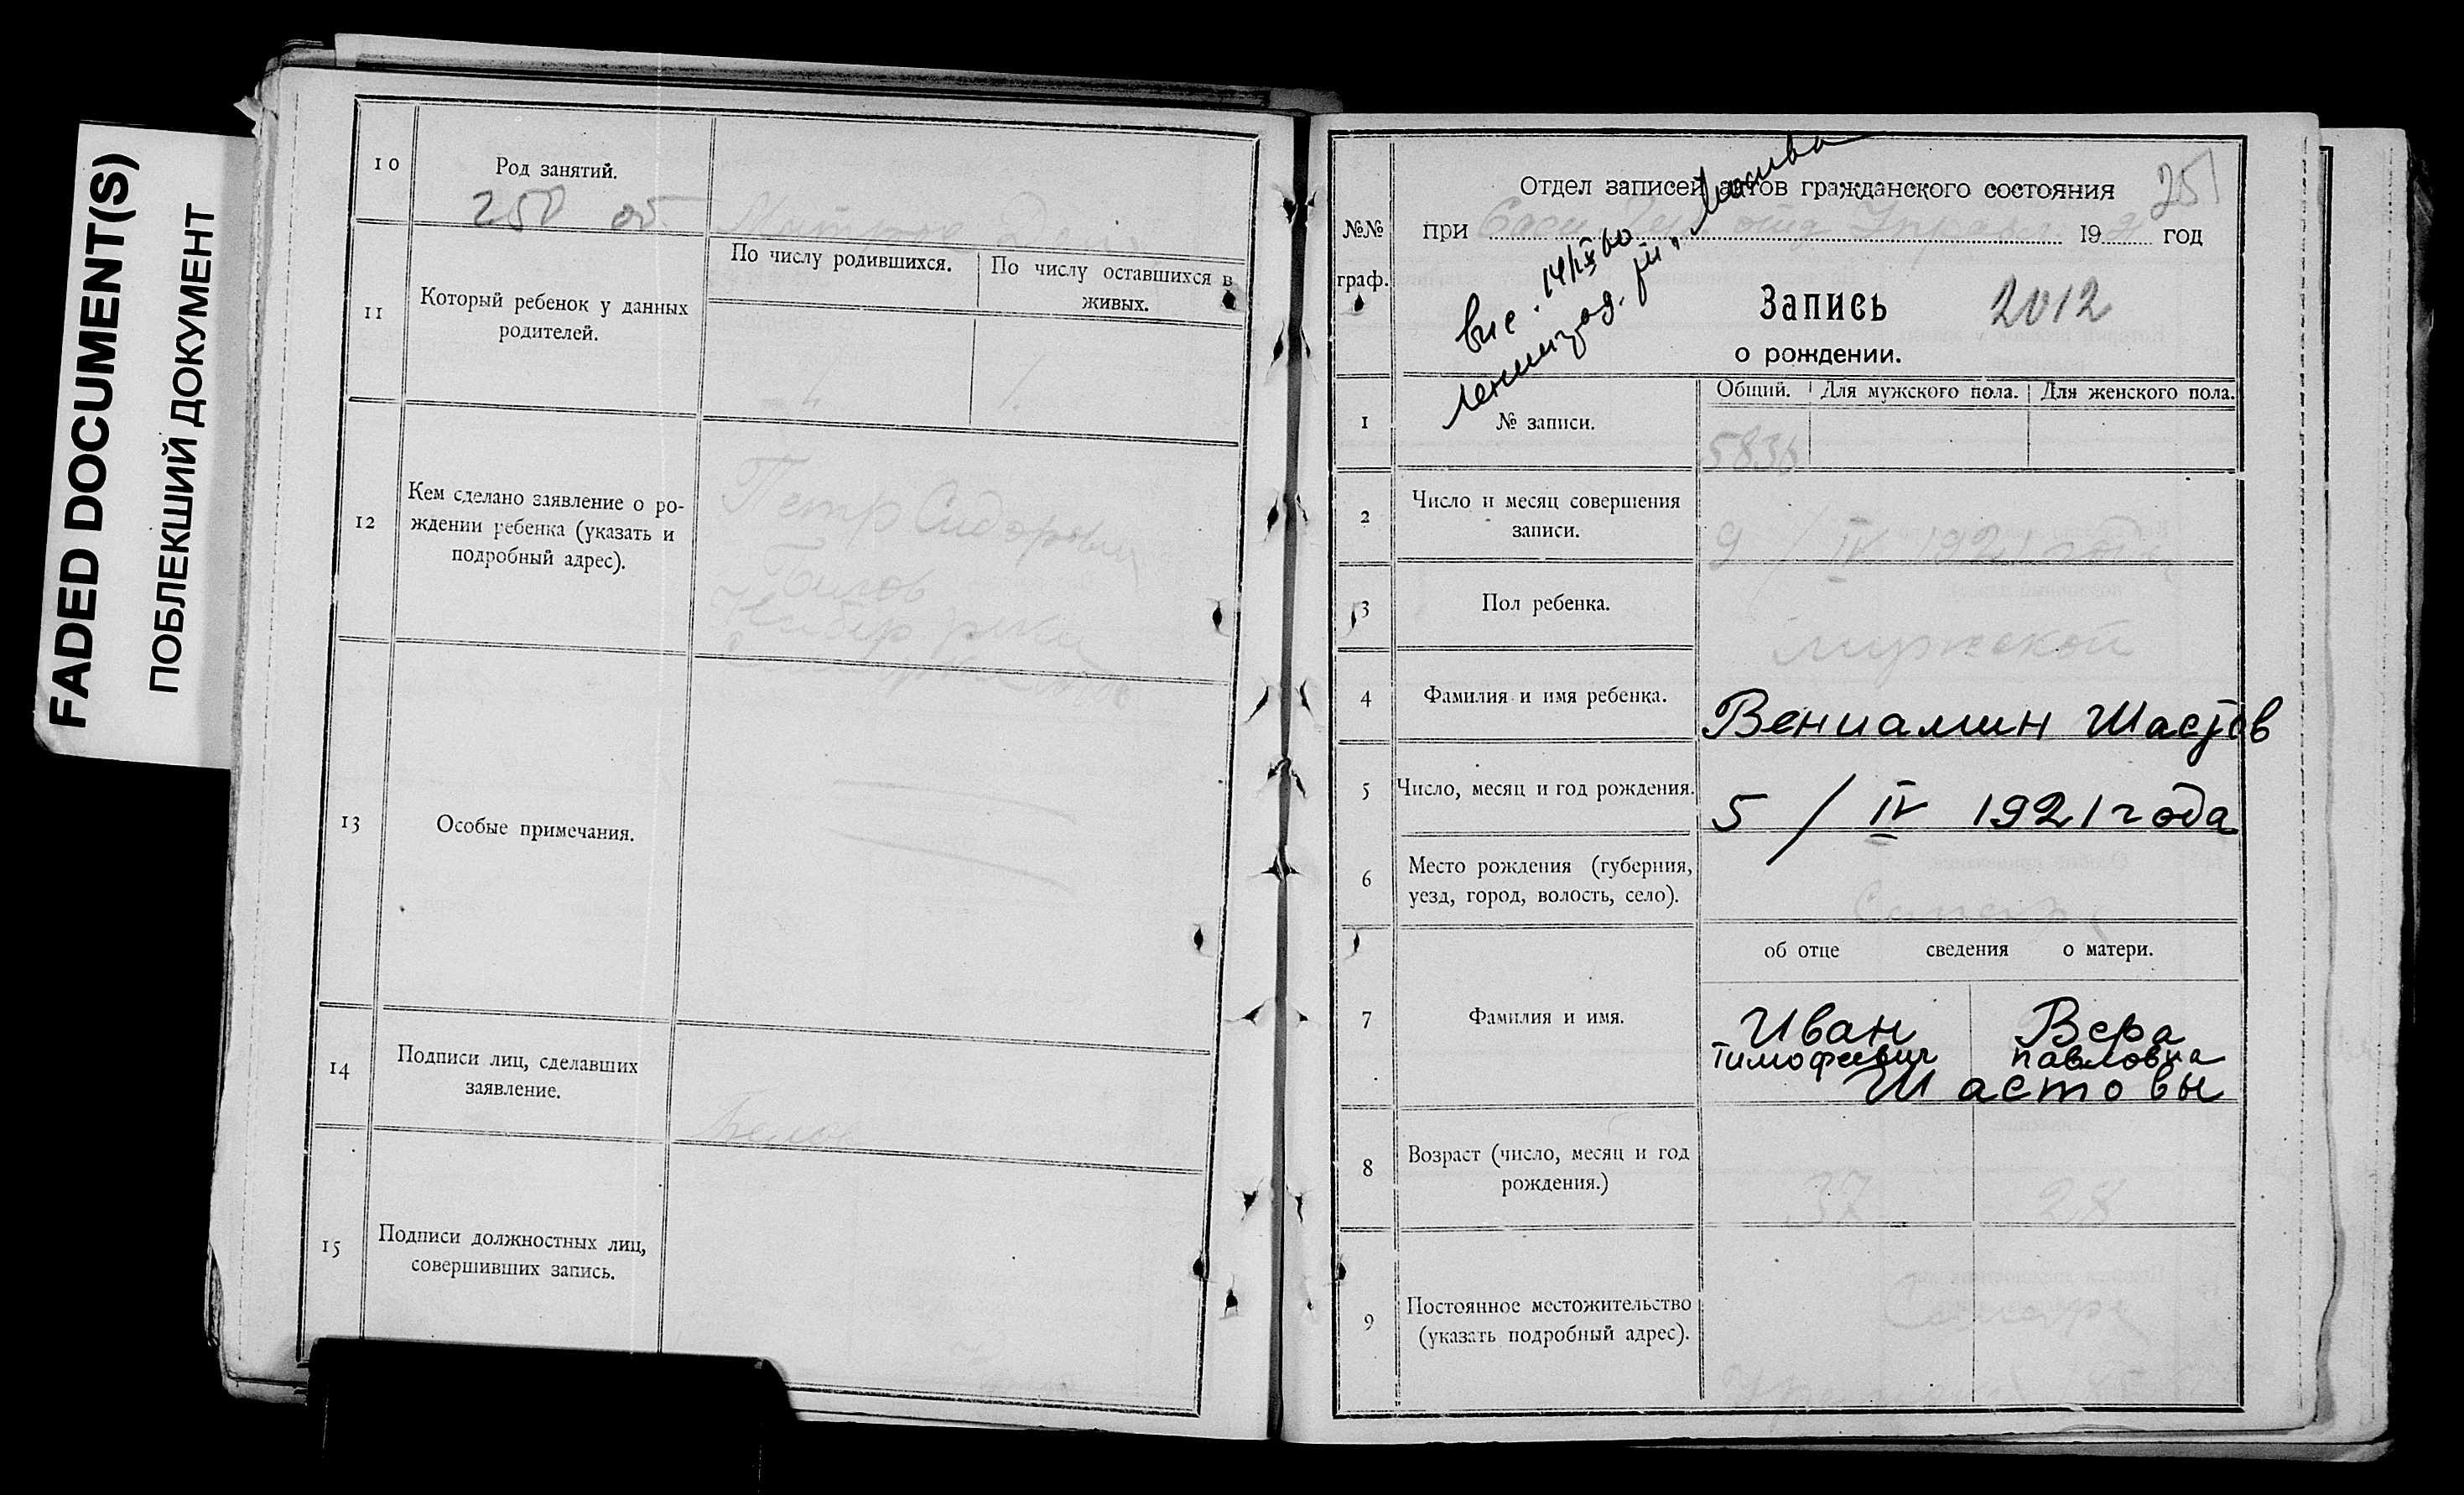 FADED DOCUMENT(S)
ПОБЛЕКШИЙ ДОКУМЕНТ
10
Род занятий.
250 об
11
Который ребенок у данных
родителей.
По числу родившихся.
По числу оставшихся в
живых.
1.
12
Кем сделано заявление о ро-
ждении ребенка (указать и
подробный адрес).
Петр Сидорович
13
Особые примечания.
14
Подписи лиц, сделавших
заявление.
15
Подписи должностных лиц,
совершивших запись.
251
№№
граф.
Отдел записей актов гражданского состояния
при 1921 год
14/IX 60
Запись
2012
о рождении.
1
№ записи.
Общий.
Для мужского пола.
Для женского пола.
5836
2
Число и месяц совершения
записи.
9 / IV 1921 года
3
Пол ребенка.
мужской
4
Фамилия и имя ребенка.
Вениамин Шастов
5
Число, месяц и год рождения.
5 / IV 1921 года
6
Место рождения (губерния,
уезд, город, волость, село).
об отце сведения о матери.
7
Фамилия и имя.
Иван
Тимофеевич
Вера
Павловна
Шастовы
8
Возраст (число, месяц и год
рождения.)
37
28
9
Постоянное местожительство
(указать подробный адрес).
Самара